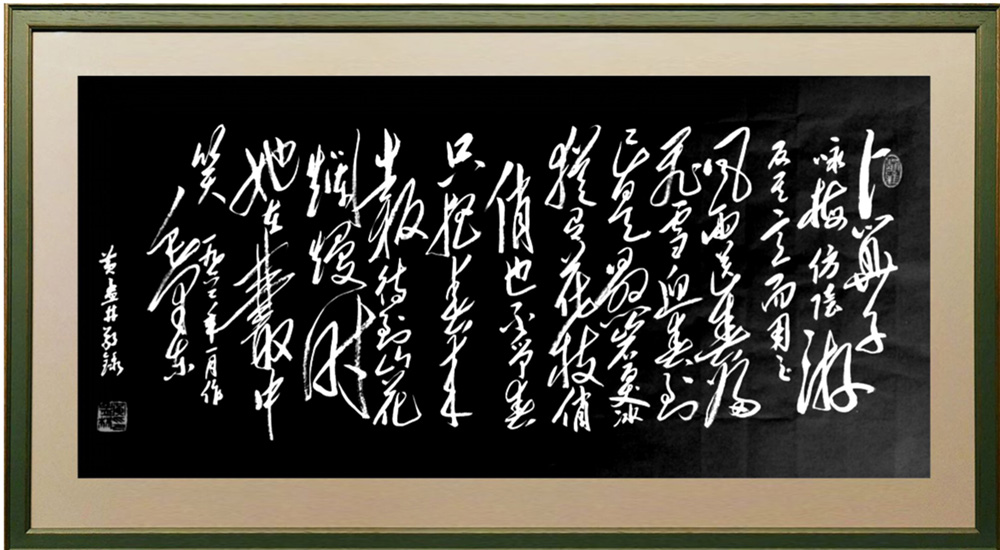 卜算子
咏梅 仿陆游
反其意而用之
风雨送春归
飞雪迎春到
已是悬崖百丈冰
犹有花枝俏
俏也不争春
只把春来
报待到山花
烂熳时
她在丛中
笑
毛泽东
一九六二年一月作
黄井敬录